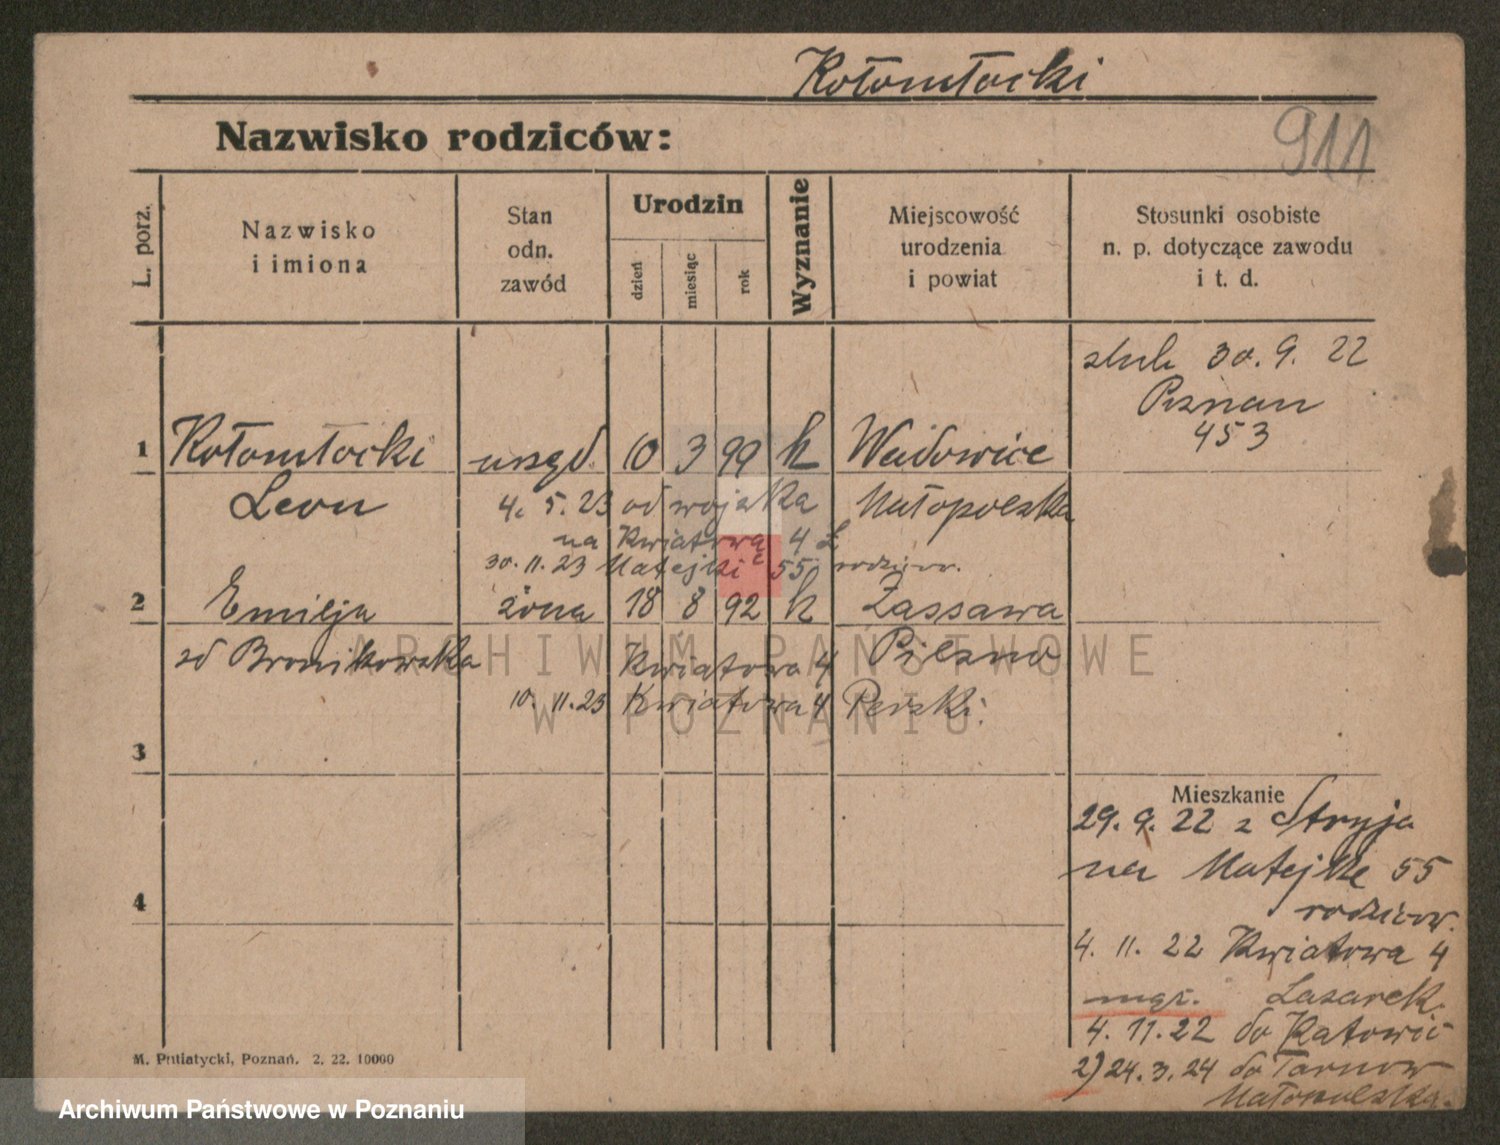 Kołomłocki
Nazwisko rodziców:
911
L. porz.
Nazwisko
i imiona
Stan
odn.
zawód
Urodzin
dzień
miesiąc
rok
Wyznanie
Miejscowość
urodzenia
i powiat
Stosunki osobiste
n. p. dotyczące zawodu
i t. d.
ślub 30. 9. 22
Poznań
453
1 Kołomłocki urzęd. 10 3 99 k Wadowice
Leon 4. 5. 23 od wojska Małopolska
na Kwiatową 4
30. 11. 23 Matejki 55 rodziców.
2 Emilja żona 18 8 92 k Zassawa
zd Bronikowska Kwiatowa 4 Pilzno
10. 11. 23 Kwiatowa 4
3
Mieszkanie
29. 9. 22 z Stryja
na Matejki 55
rodziców.
4
4. 11. 22 Kwiatowa 4
Lazarek
4. 11. 22 do Katowic
2) 24. 3. 24 do Tarnow
Małopolska.
M. Putiatycki, Poznań. 2. 22. 10000
ARCHIWUM PAŃSTWOWE
W POZNANIU
Archiwum Państwowe w Poznaniu